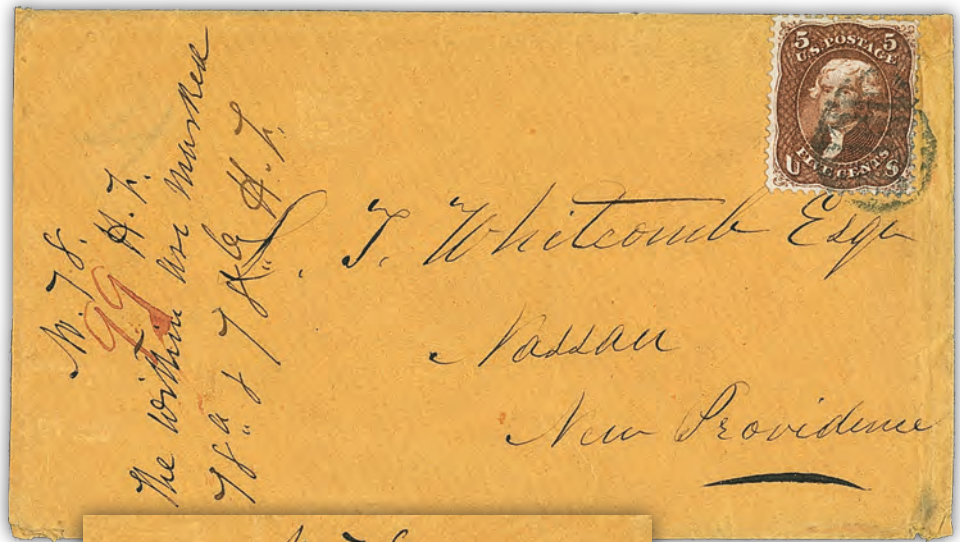 5 5
U.S. POSTAGE
FIVE CENTS
U S
S. T. Whitcomb Esqr
Nassau
New Providence
No. 78.
H. L.
99
The within are marked
78 a & 78 b H. L.